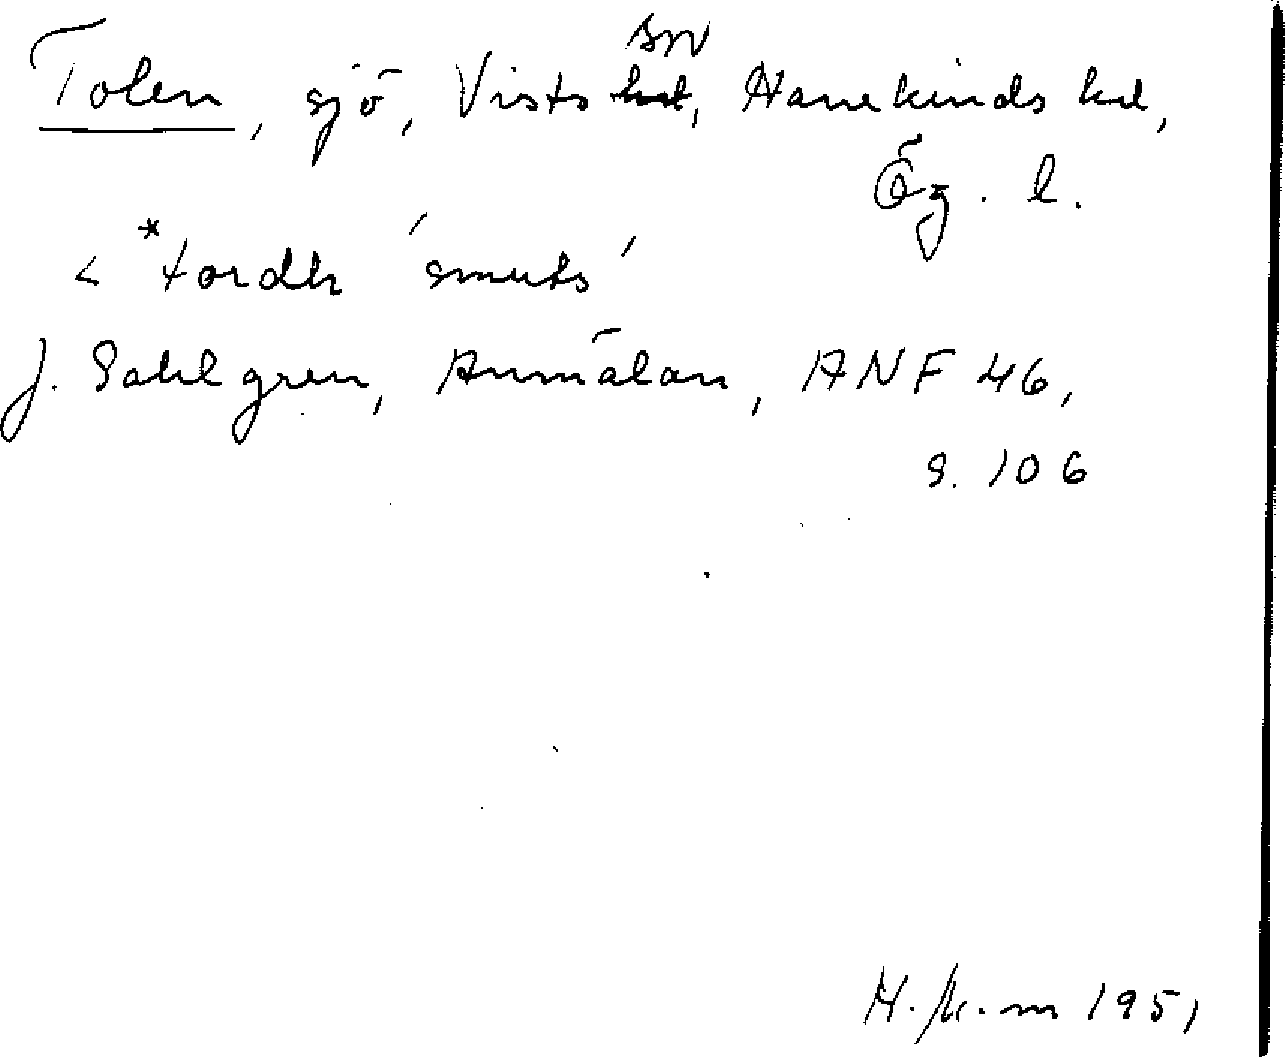 Tolen, sjö, Vists sn, Hanekinds hd,
Ög. l.
< *tordh 'smuts'
J. Sahlgren, Anmälan, ANF 46,
s. 106
1951